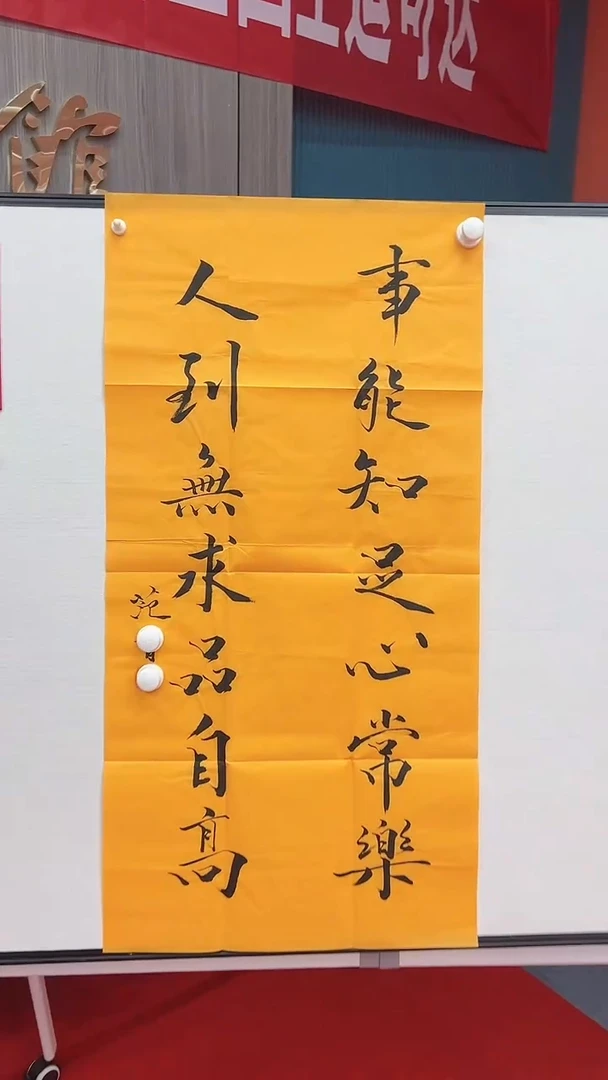 事能知足心常樂
人到無求品自高
范